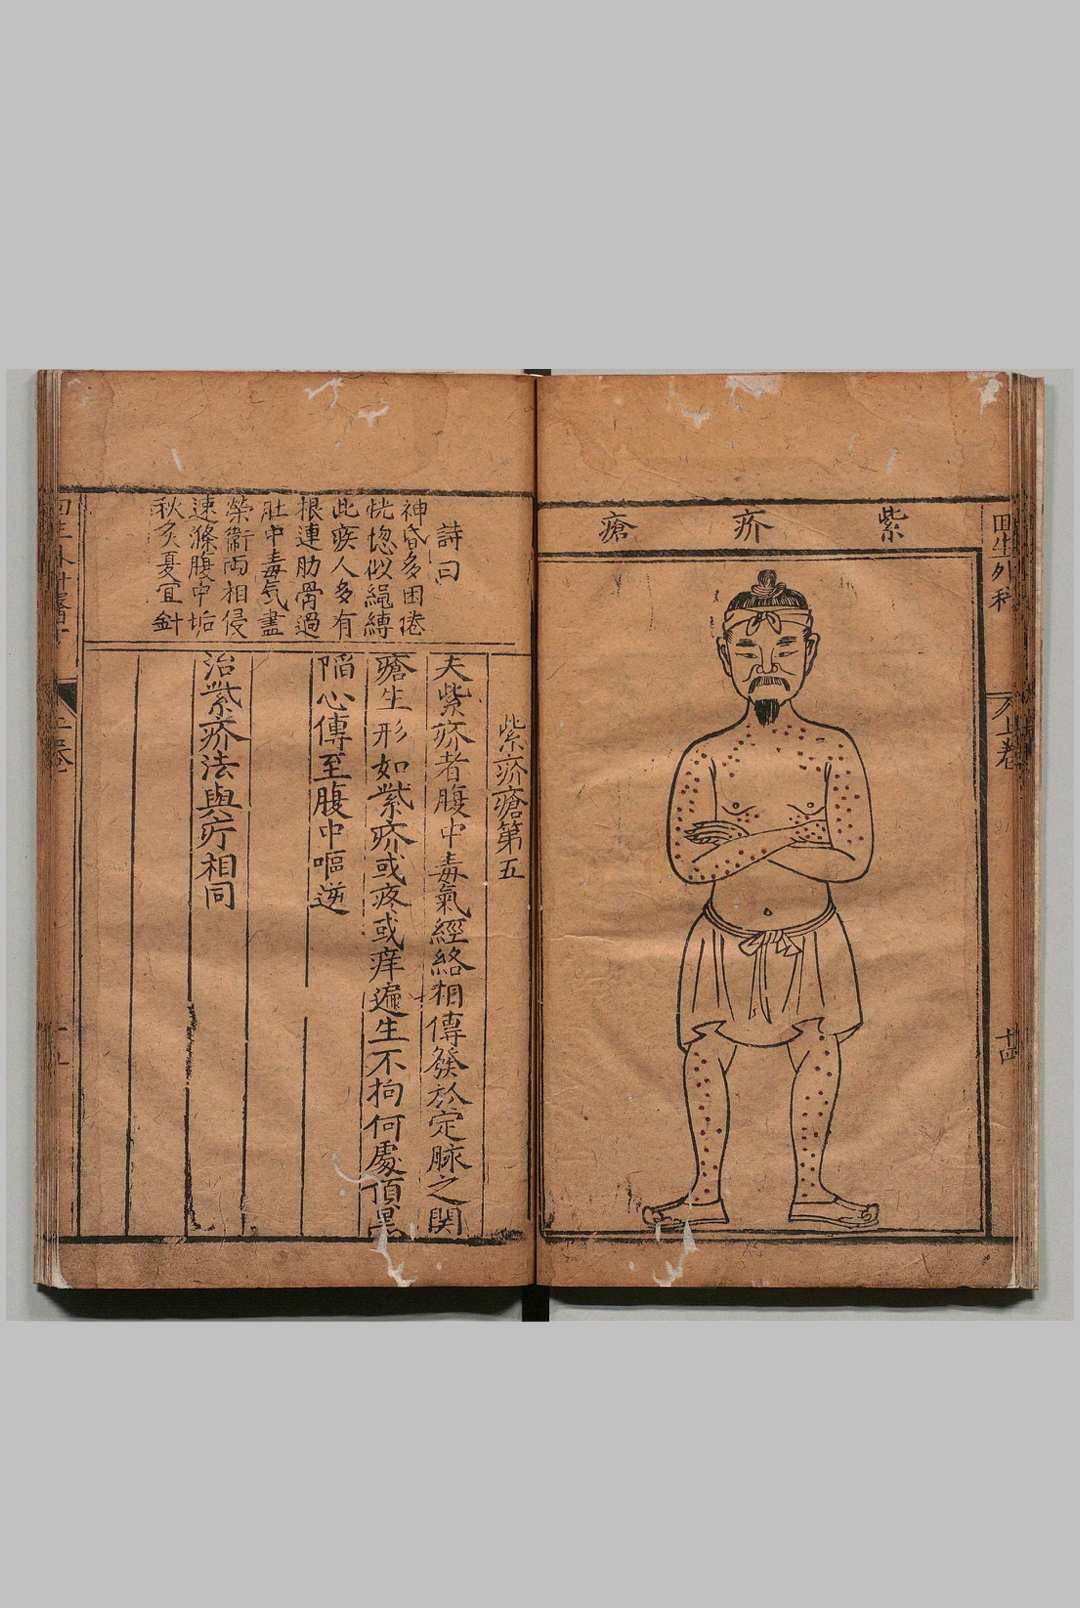 紫疥瘡
回生外科
上卷
十四
紫疥瘡第五
詩曰
神昏多困倦
恍惚似繩縛
此疾人多有
根連肋骨過
肚中毒气盡
榮衛両相侵
速滌腹中垢
秋灸夏宜針
夫紫疥者腹中毒氣經絡相傳發於定脉之関
瘡生形如紫疥或疼或痒遍生不拘何處頂黑
陷心傳至腹中嘔逆
治紫疥法與疔相同
上卷